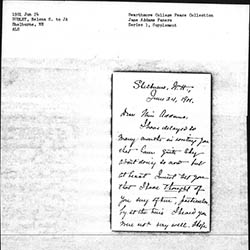 1901 Jun 24
DUDLEY, Helena S. to JA
Shelburne, NH
4LS
Swarthmore College Peace Collection
Jane Addams Papers
Series 1, Supplement
Shelburne, N.H.,
June 24, 1901.
Dear Miss Addams,
I have delayed so
many months in writing you
that I am quite shy
about doing so now but
at heart I must let you
that I have thought of
you very often, particular
ly at the time I heard you
were not very well. I hope